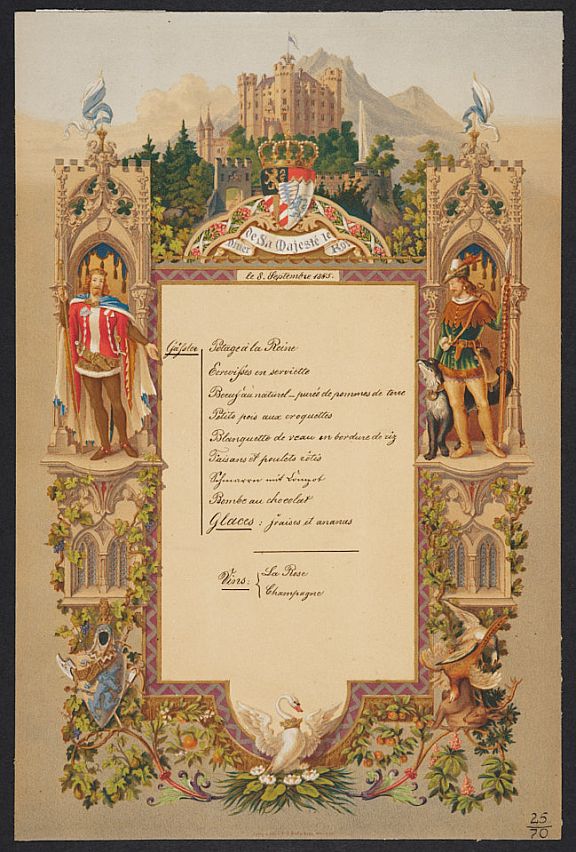 Diner de Sa Majesté le Roi
le 8. Septembre 1885.
Potage à la Reine
Ecrevißes en serviette
Boeuf au naturel – purée de pommes de terre
Petits pois aux croquettes
Blanquette de veau en bordure de riz
Faisans et poulets rôtis
Schmarrn mit
Bombe au chocolat
Glaces : fraises et ananas
Vins : { La Rose
Champagne
25
70